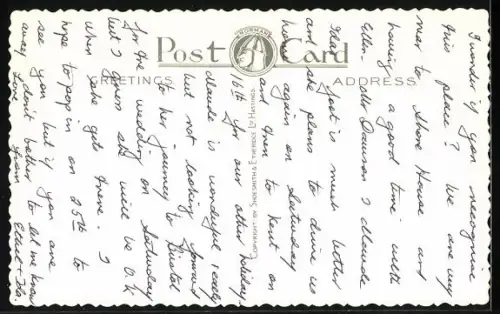 POST CARD
NORMAN
GREETINGS
ADDRESS
COPYRIGHT BY SHOESMITH & ETHERIDGE LTD HASTINGS
I wonder if you recognise
this place? We are very
near to Shore House and
having a good time with
Ellen - Mr Dawson & Maude
Yeat is much better
and she plans to drive us
home again on Saturday
and then to Kent on
16th for our other holiday
Maude is wonderful really
but not looking forward
to her journey to Bristol
for the wedding on Saturday
but I know she will be O.K.
when she gets there. I
hope to pop in on 25th to
see you but if you are
away don't bother to let me know
Love from Ethel + Flo.